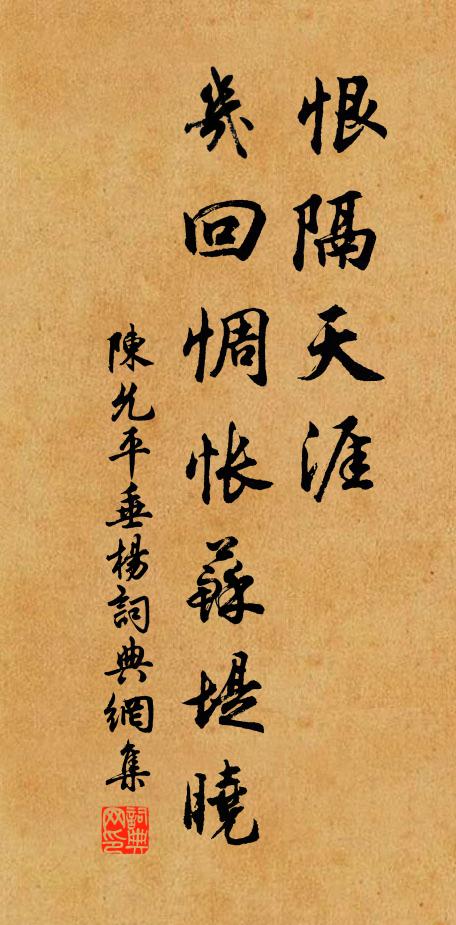 恨隔天涯
幾回惆悵蘇堤曉
陳允平垂楊詞典網集
詞典網印